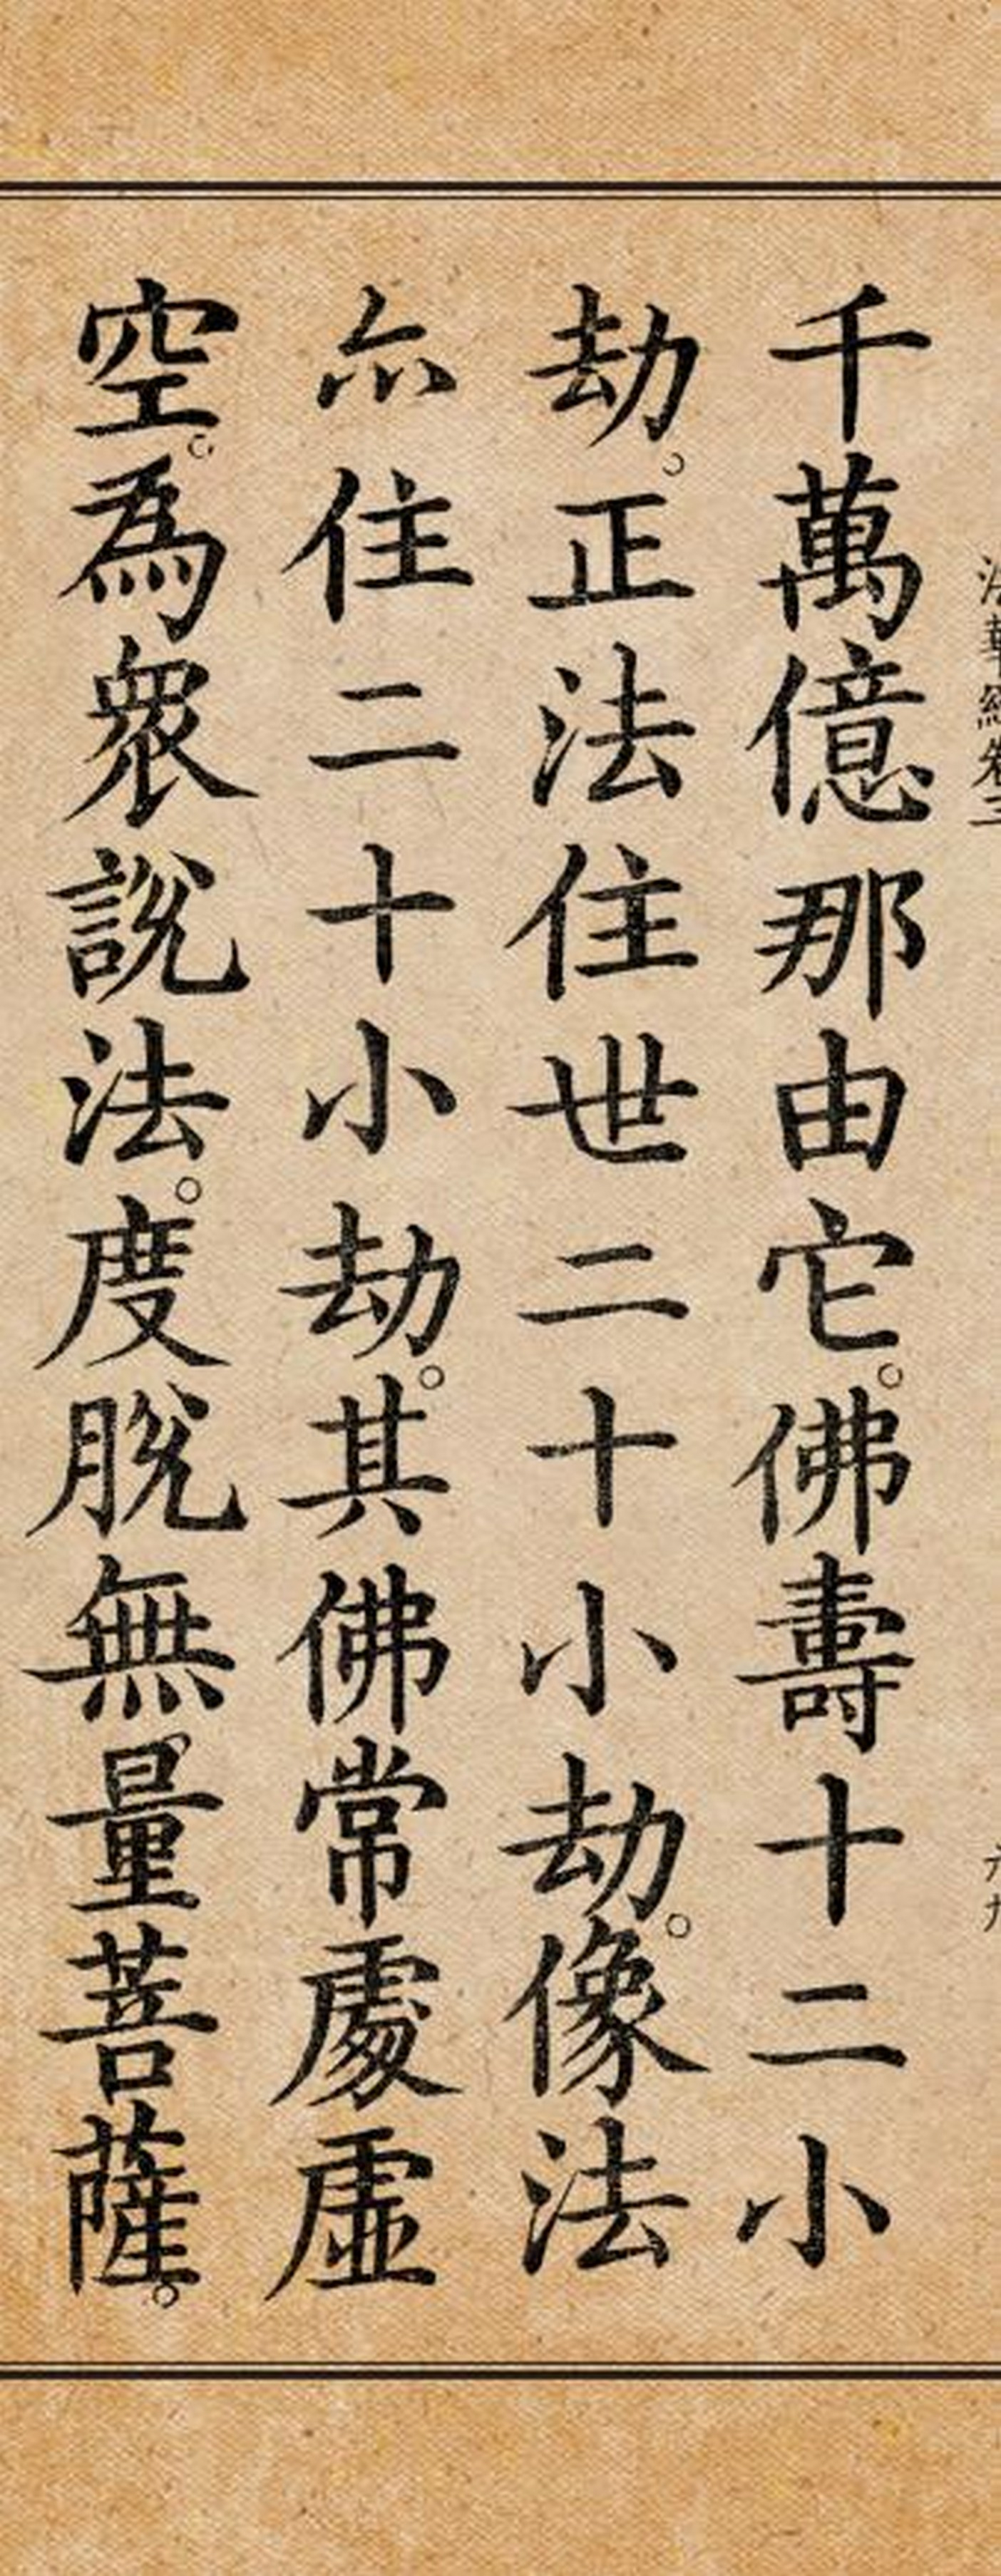 法華經卷三
千萬億那由它。佛壽十二小
劫。正法住世二十小劫。像法
尒住二十小劫。其佛常處虛
空。為衆說法。度脫無量菩薩。